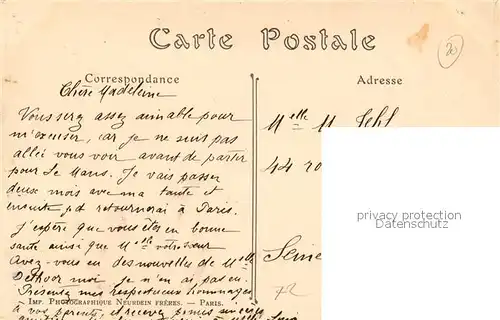 Carte Postale
Correspondance
Adresse
Chère Madeleine
Vous serez assez aimable pour
m'excuser, car je ne suis pas
allée vous voir avant de partir
pour Le Mans. Je vais passer
deux mois avec ma tante et
ensuite retournerai à Paris.
J'espère que vous êtes en bonne
santé ainsi que Melle votre sœur
Avez-vous eu des nouvelles de Melle
moi je n'en ai pas eu.
Présentez mes respectueux hommages
IMP. PHOTOGRAPHIQUE NEURDEIN FRÈRES. — PARIS.
à vos parents, et recevez
Melle M.
44 ro
Seine
72
20
privacy protection
DELCAMPE